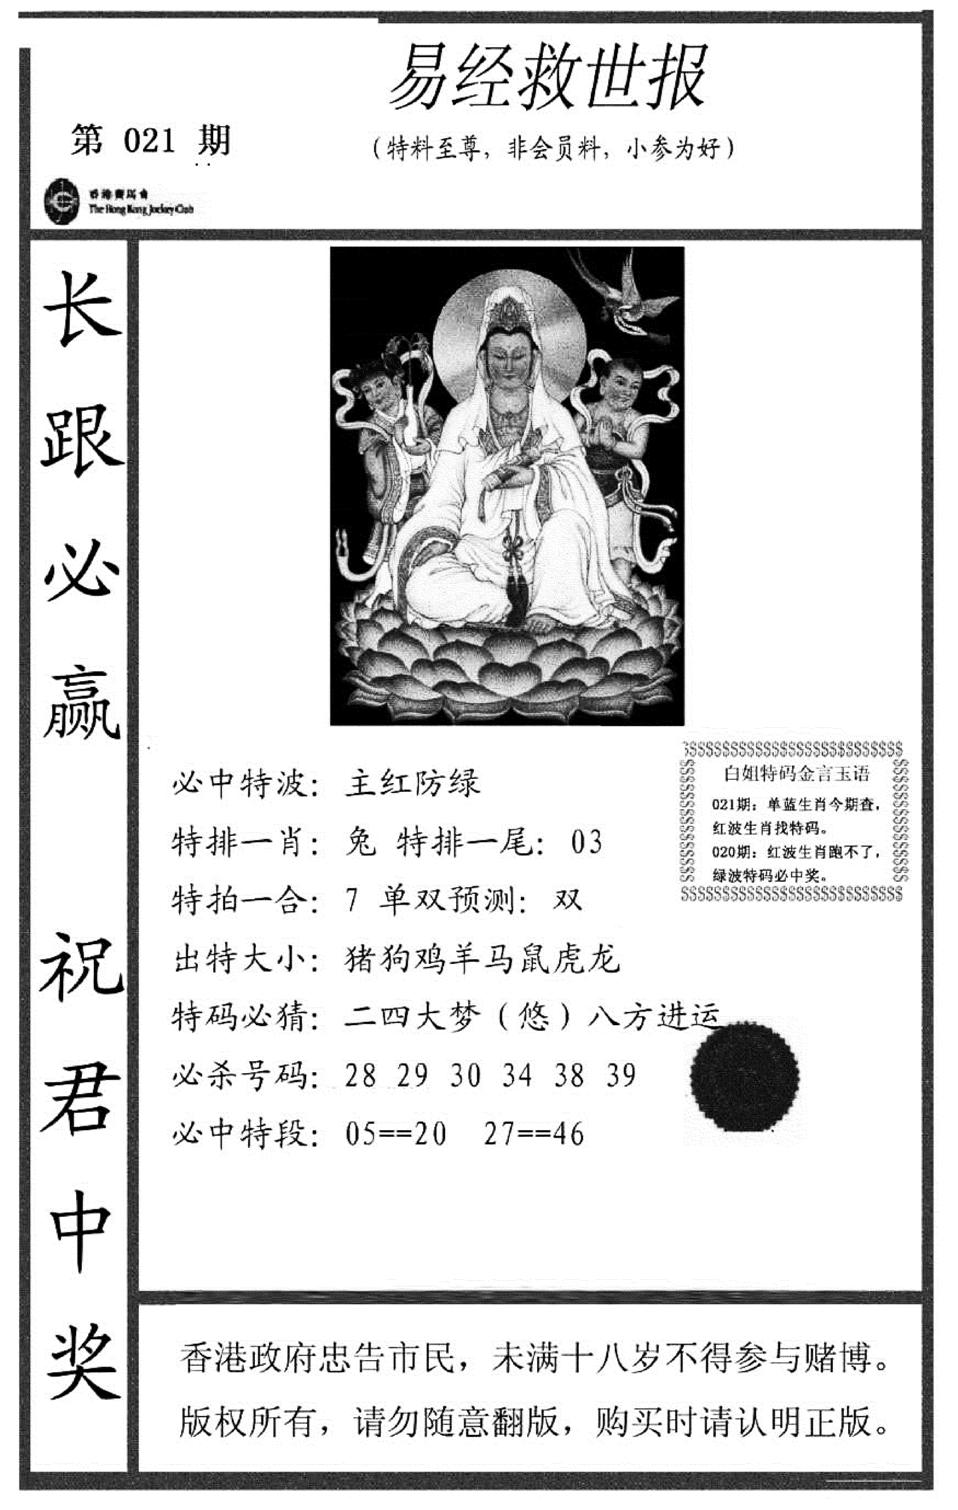 易经救世报
第 021 期
(特料至尊, 非会员料, 小参为好)
香港賽馬會
The Hong Kong Jockey Club
长跟必赢 祝君中奖
必中特波: 主红防绿
特排一肖: 兔 特排一尾: 03
特拍一合: 7 单双预测: 双
出特大小: 猪狗鸡羊马鼠虎龙
特码必猜: 二四大梦（悠）八方进运
必杀号码: 28 29 30 34 38 39
必中特段: 05==20 27==46
白姐特码金言玉语
021期: 单蓝生肖今期查,
红波生肖找特码。
020期: 红波生肖跑不了,
绿波特码必中奖。
香港政府忠告市民, 未满十八岁不得参与赌博。
版权所有, 请勿随意翻版, 购买时请认明正版。